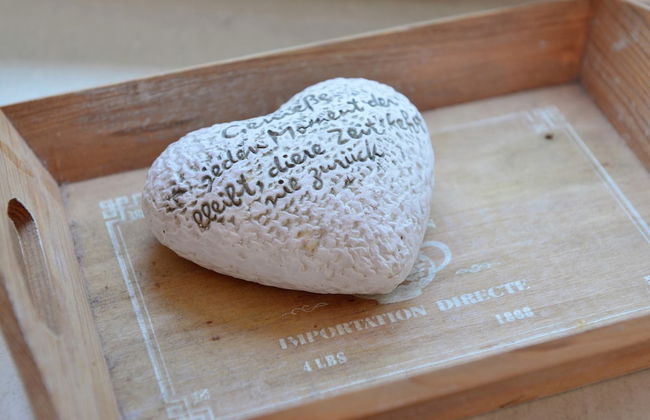 Genieße
jeden Moment der
bleibt, diese Zeit kehrt
nie zurück
IMPORTATION DIRECTE
4 LBS
1808